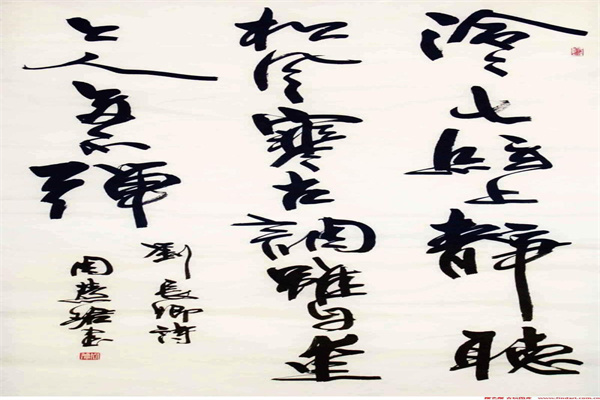 泠々七絃上靜聽
松风寒古調雖自愛
今人多不彈
劉長卿詩
周慧珺書